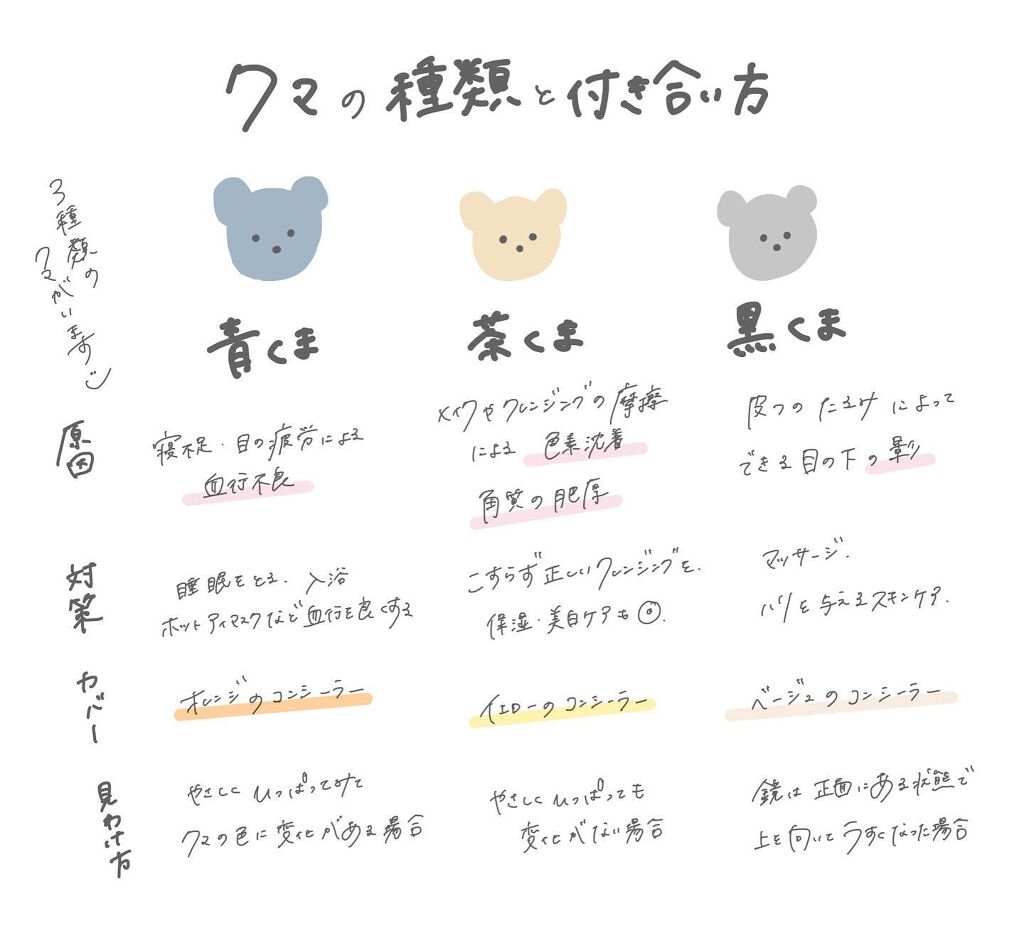 クマの種類と付き合い方
3種類の
クマがいます
青くま
茶くま
黒くま
原因
寝不足・目の疲労による
血行不良
メイクやクレンジングの摩擦
による 色素沈着
角質の肥厚
皮ふの たるみ によって
できる目の下の影
対策
睡眠をとる、入浴
ホットアイマスクなど血行を良くする
こすらず正しいクレンジングを、
保湿・美白ケアも◎.
マッサージ、
ハリを与えるスキンケア.
カバー
オレンジのコンシーラー
イエローのコンシーラー
ベージュのコンシーラー
見わけ方
やさしく ひっぱってみて
クマの色に変化がある場合
やさしくひっぱっても
変化がない場合
鏡は正面にある状態で
上を向いてうすくなった場合